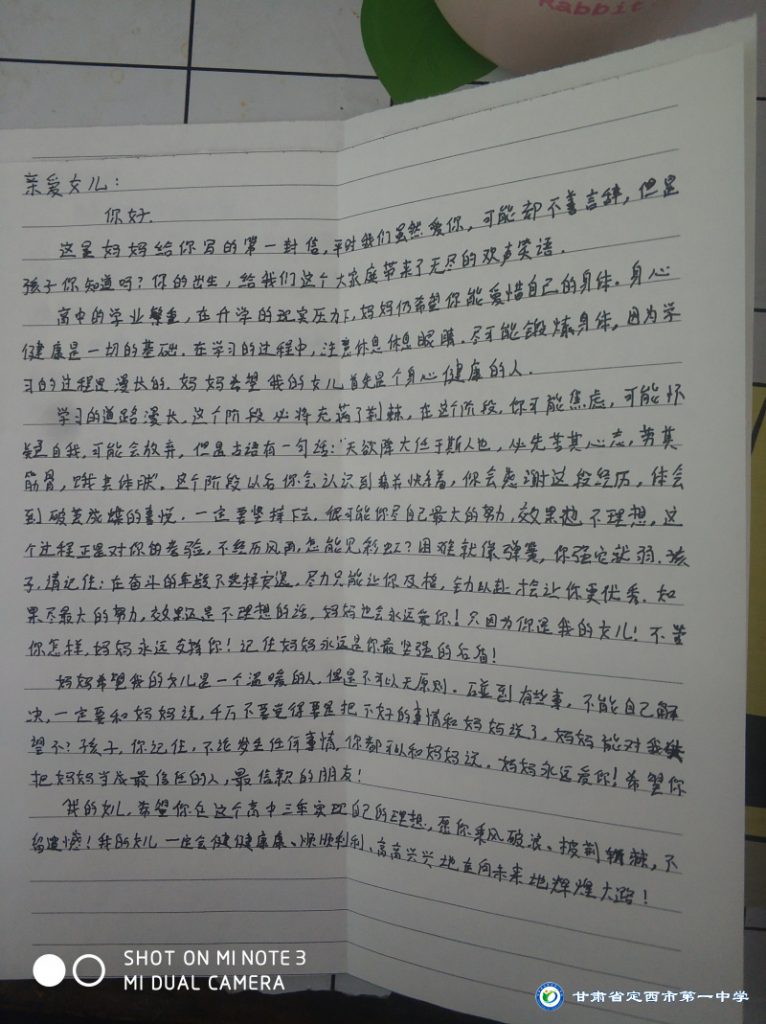 Rabbit
亲爱女儿：
你好.
这是妈妈给你写的第一封信,平时我们虽然爱你,可能都不善言辞,但是
孩子你知道吗?你的出生,给我们这个大家庭带来了无尽的欢声笑语.
高中的学业繁重,在升学的现实压力下,妈妈仍希望你能爱惜自己的身体.身心
健康是一切的基础.在学习的过程中,注意休息休息眼睛.尽可能锻炼身体,因为学
习的过程是漫长的.妈妈希望我的女儿首先是个身心健康的人.
学习的道路漫长,这个阶段必将充满了荆棘,在这个阶段,你可能焦虑,可能怀
疑自我,可能会放弃,但是古语有一句话:"天欲降大任于斯人也,必先苦其心志,劳其
筋骨,饿其体肤".这个阶段以后你会认识到痛并快乐着,你会感谢这段经历,体会
到破茧成蝶的喜悦.一定要坚持下去.很可能你尽自己最大的努力,效果也不理想,这
个过程正是对你的考验,不经历风雨,怎能见彩虹?困难就像弹簧,你强它就弱.孩
子,请记住:在奋斗的年龄不选择安逸.尽力只能让你及格,全力以赴才会让你更优秀.如
果尽最大的努力,效果还是不理想的话,妈妈也会永远爱你!只因为你是我的女儿!不管
你怎样,妈妈永远支持你!记住妈妈永远是你最坚强的后盾!
妈妈希望我的女儿是一个温暖的人,但是不可以无原则.碰到有些事,不能自己解
决,一定要和妈妈说,千万不要觉得要是把不好的事情和妈妈说了,妈妈能对我失
望不?孩子,你记住,不论发生任何事情,你都可以和妈妈说.妈妈永远爱你!希望你
把妈妈当成最信任的人,最信赖的朋友!
我的女儿,希望你在这个高中三年实现自己的理想,愿你乘风破浪、披荆斩棘,不
留遗憾!我的女儿一定会健健康康、顺顺利利、高高兴兴地走向未来地辉煌大路!
SHOT ON MI NOTE 3
MI DUAL CAMERA
甘肃省定西市第一中学